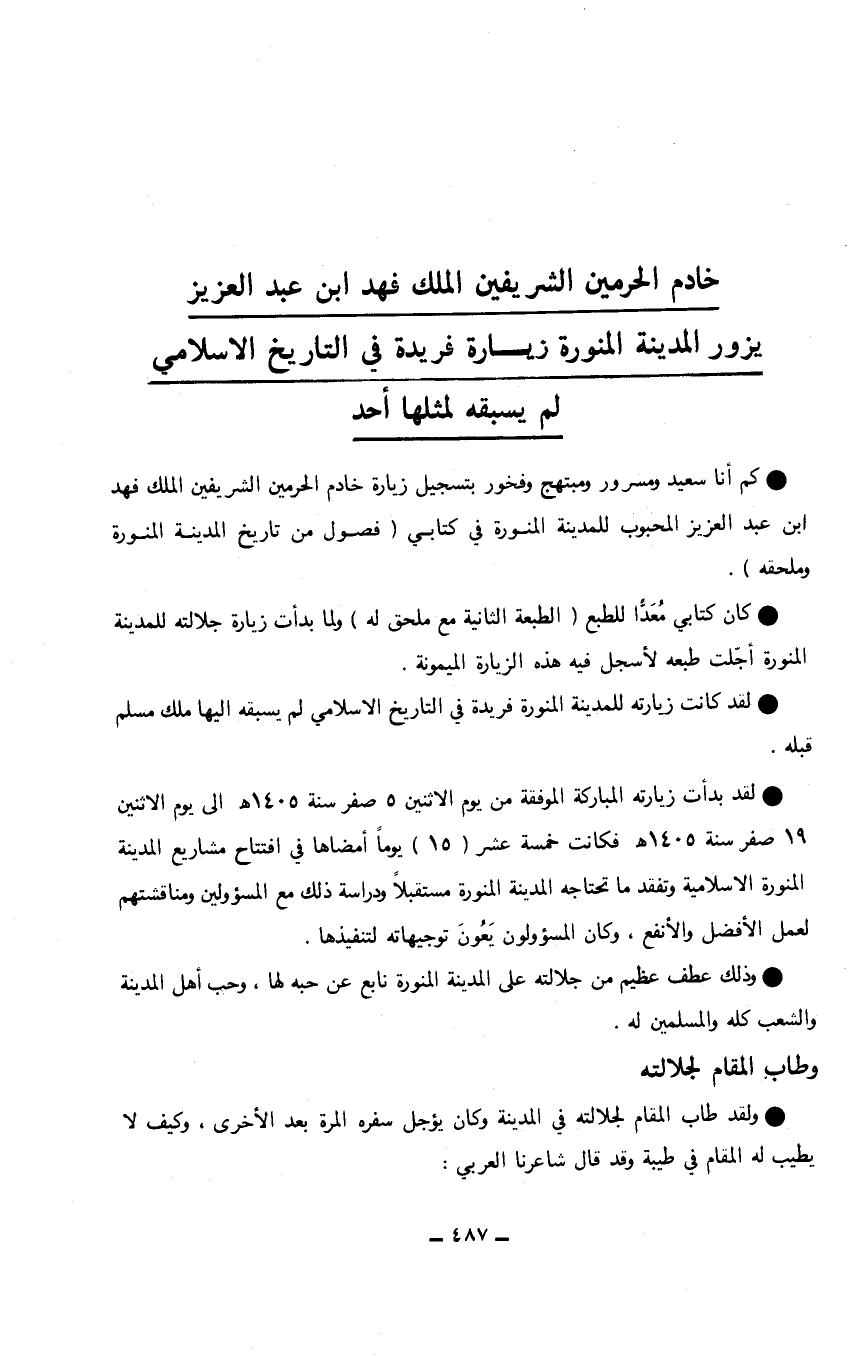 خادم الحرمين الشريفين الملك فهد ابن عبد العزيز
يزور المدينة المنورة زيـــارة فريدة في التاريخ الاسلامي
لم يسبقه لمثلها أحد
● كم أنا سعيد ومسرور ومبتهج وفخور بتسجيل زيارة خادم الحرمين الشريفين الملك فهد
ابن عبد العزيز المحبوب للمدينة المنـورة في كتابـي ( فصـول من تاريخ المدينـة المنـورة
وملحقه ) .
● كان كتابي مُعَدًّا للطبع ( الطبعة الثانية مع ملحق له ) ولما بدأت زيارة جلالته للمدينة
المنورة أجّلت طبعه لأسجل فيه هذه الزيارة الميمونة .
● لقد كانت زيارته للمدينة المنورة فريدة في التاريخ الاسلامي لم يسبقه اليها ملك مسلم
قبله .
● لقد بدأت زيارته المباركة الموفقة من يوم الاثنين ٥ صفر سنة ١٤٠٥هـ الى يوم الاثنين
١٩ صفر سنة ١٤٠٥هـ فكانت خمسة عشر ( ١٥ ) يوماً أمضاها في افتتاح مشاريع المدينة
المنورة الاسلامية وتفقد ما تحتاجه المدينة المنورة مستقبلاً ودراسة ذلك مع المسؤولين ومناقشتهم
لعمل الأفضل والأنفع ، وكان المسؤولون يَعُونَ توجيهاته لتنفيذها .
● وذلك عطف عظيم من جلالته على المدينة المنورة نابع عن حبه لها ، وحب أهل المدينة
والشعب كله والمسلمين له .
وطاب المقام لجلالته
● ولقد طاب المقام لجلالته في المدينة وكان يؤجل سفره المرة بعد الأخرى ، وكيف لا
يطيب له المقام في طيبة وقد قال شاعرنا العربي :
ــ ٤٨٧ ــ